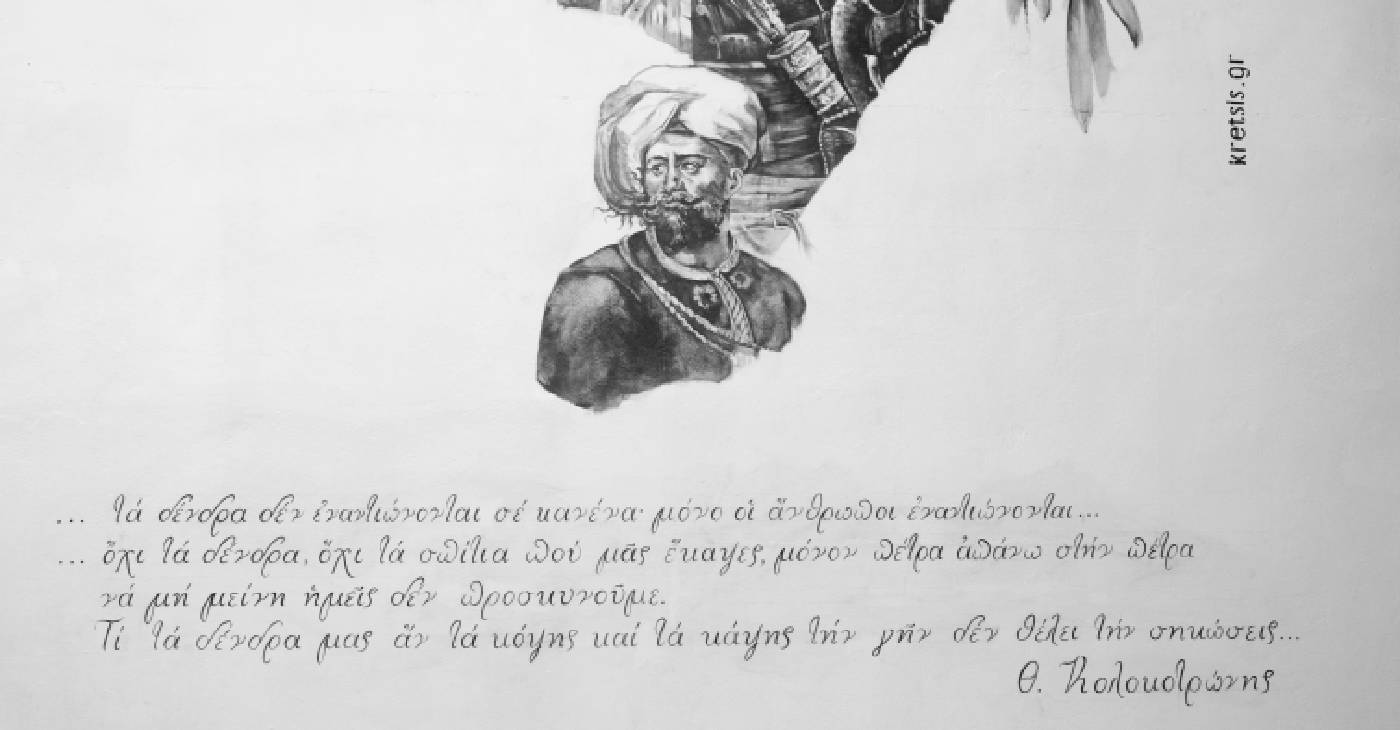 kretsis.gr
... τά δένδρα δέν ἐναντιώνονται σέ κανένα· μόνο οἱ ἄνθρωποι ἐναντιώνονται...
... ὄχι τά δένδρα, ὄχι τά σπίτια πού μᾶς ἔκαψες, μόνον πέτρα ἀπάνω στήν πέτρα
νά μή μείνη ἡμεῖς δέν προσκυνοῦμε.
Τί τά δένδρα μας ἄν τά κόψης καί τά κάψης τήν γῆν δέν θέλει τήν σηκώσεις...
Θ. Κολοκοτρώνης